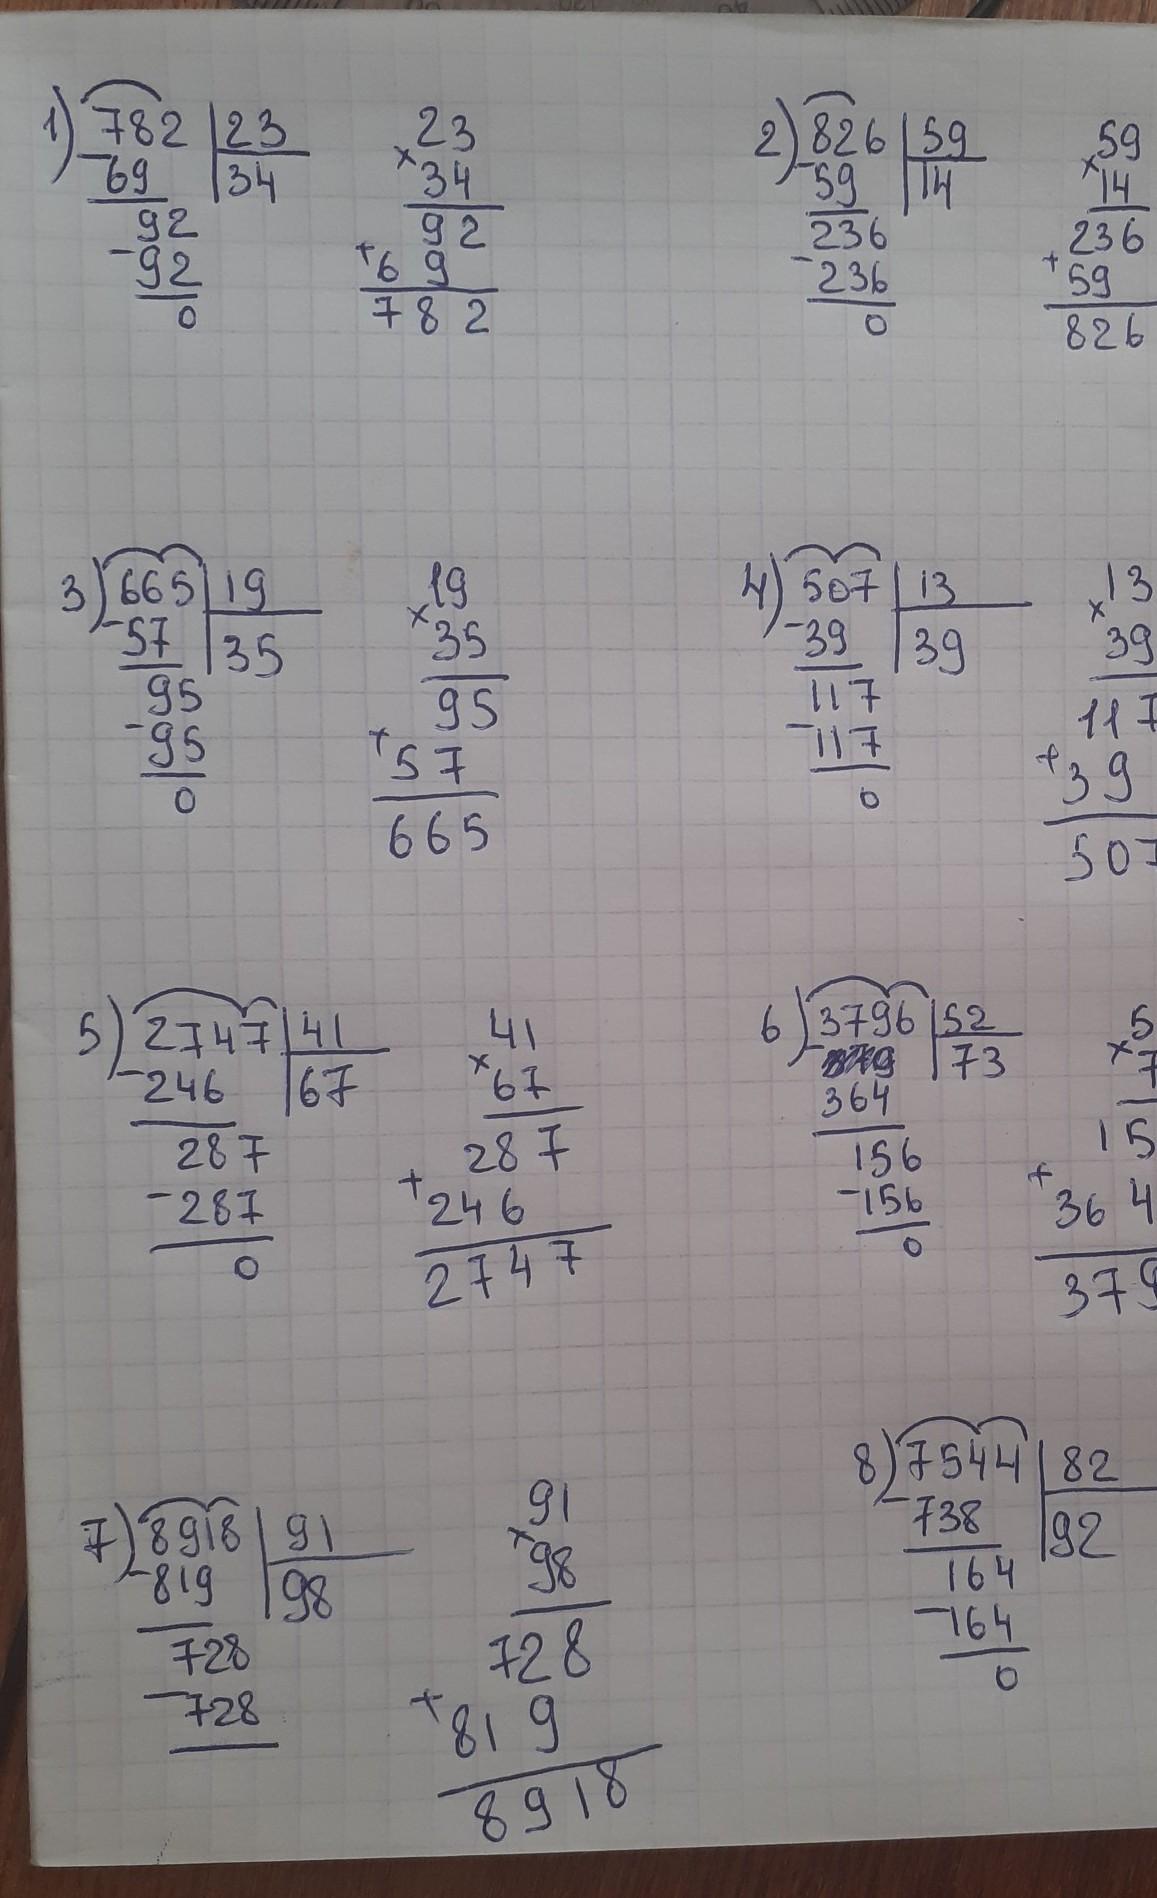 1) 782 | 23
- 69 | 34
92
- 92
0
23
× 34
92
+ 6 9
7 8 2
2) 826 | 59
- 59 | 14
236
- 236
0
59
× 14
236
+ 59
826
3) 665 | 19
- 57 | 35
95
- 95
0
19
× 35
95
+ 57
665
4) 507 | 13
- 39 | 39
117
- 117
0
13
× 39
117
+ 39
507
5) 2747 | 41
- 246 | 67
287
- 287
0
41
× 67
287
+ 246
2747
6) 3796 | 52
- 364 | 73
156
- 156
0
5
× 7
15
+ 364
379
7) 8918 | 91
- 819 | 98
728
- 728
91
× 98
728
+ 819
8918
8) 7544 | 82
- 738 | 92
164
- 164
0